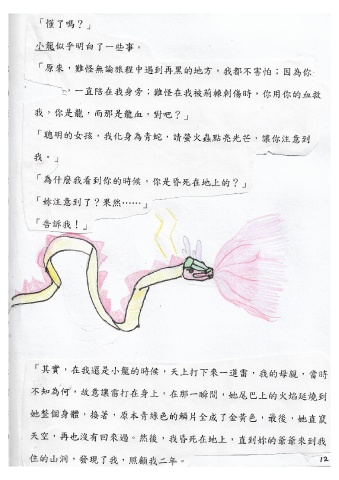 「懂了嗎?」
小龍似乎明白了一些事。
「原來,難怪無論旅程中遇到再黑的地方,我都不害怕;因為你
,一直陪在我身旁;難怪在我被荊棘刺傷時,你用你的血救
我,你是龍,而那是龍血,對吧?」
「聰明的女孩,我化身為青蛇,請螢火蟲點亮光芒,讓你注意到
我。」
「為什麼我看到你的時候,你是昏死在地上的?」
「妳注意到了?果然……」
「告訴我!」
「其實,在我還是小龍的時候,天上打下來一道雷,我的母親,當時
不知為何,故意讓雷打在身上,在那一瞬間,她尾巴上的火焰延燒到
她整個身體,接著,原本青綠色的鱗片全成了金黃色,最後,她直竄
天空,再也沒有回來過。然後,我昏死在地上,直到妳的爺爺來到我
住的山洞,發現了我,照顧我二年。
12